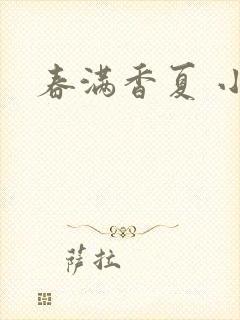 春满香夏 小
萨拉